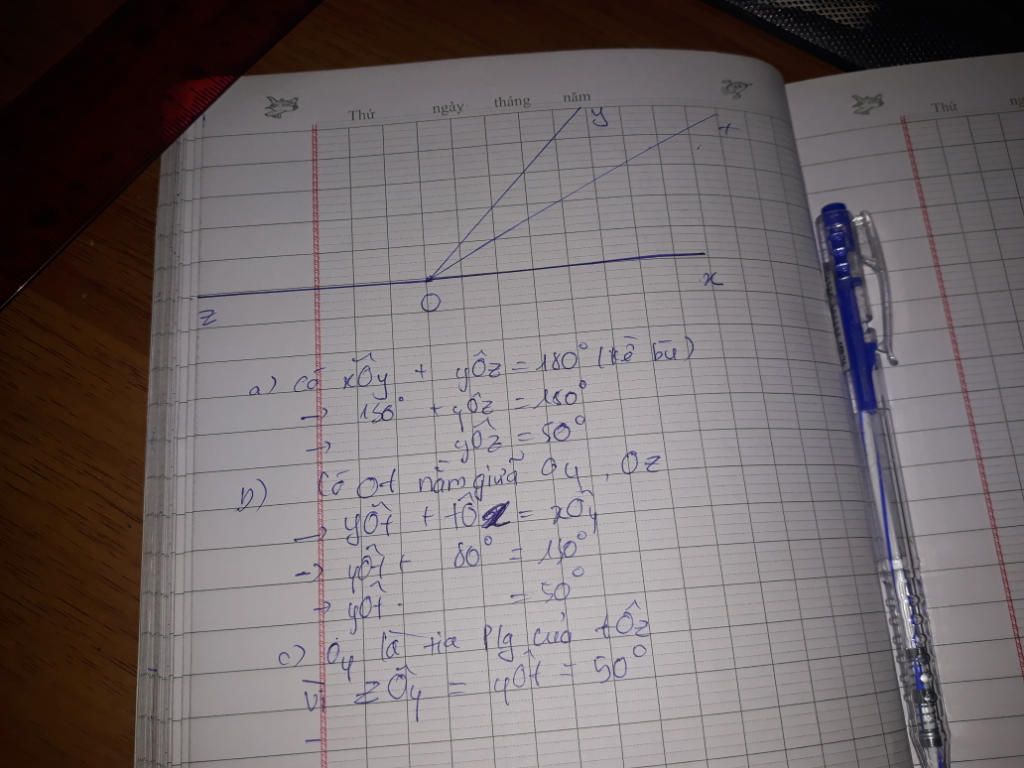 Thứ ngày tháng năm
Thứ
y
t
z O x
a) Có xÔy + yÔz = 180° (kề bù)
→ 130° + yÔz = 180°
→ yÔz = 50°
b) Có Ot nằm giữa Oy, Oz
→ yÔt + tÔx = xÔy
→ yÔt + 80° = 130°
→ yÔt = 50°
c) Oy là tia p/g của tÔz
Vì zÔy = yÔt = 50°